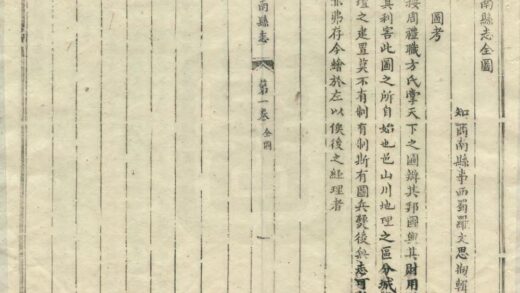 南縣志全圖
知商南縣事西蜀羅文思搊輯
圖考
按周禮職方氏掌天下之圖辨其邦國與其財用
其利害此圖之所自始也邑山川地理之區分城
壇之建置莫不有制有制斯有圖兵燹後與志可
弗存今繪於左以俟後之經理者
南縣志
第一卷
全圖
一